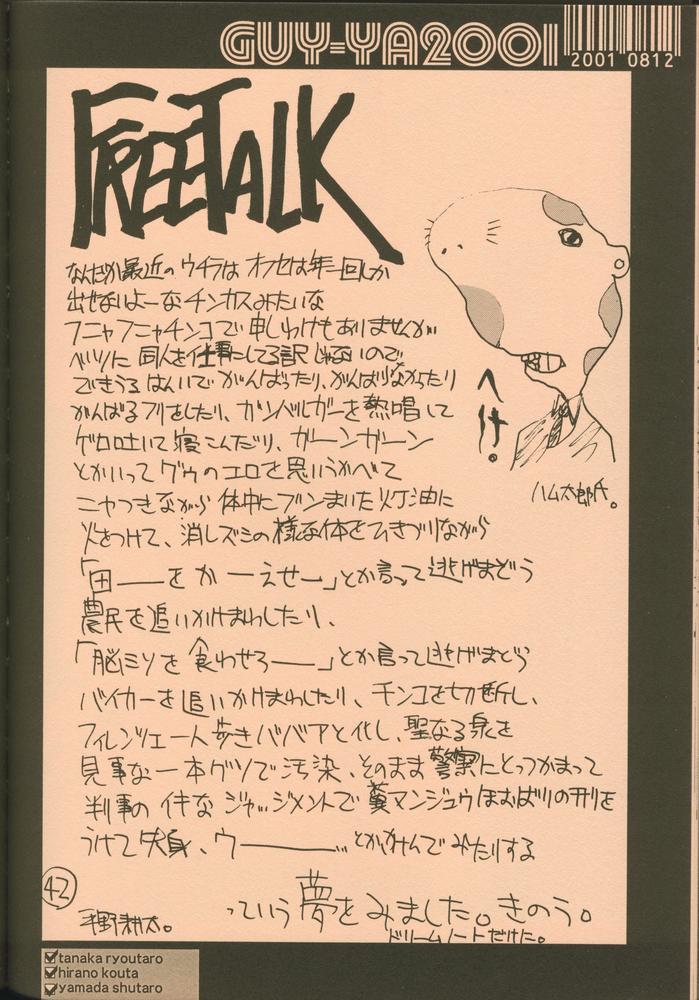 GUY-YA2001
2001 0812
FREETALK
なんだか最近のウチラはオフセは年一回しか
出せないよーなチンカスみたいな
フニャフニャチンコで申しわけもありませんが
ベツに同人を仕事にしてる訳じゃないので
できうるはんいでがんばったり、がんばらなかったり
がんばるフリをしたり、ガンバルガーを熱唱して
ゲロ吐いて寝こんだり、ガーンガーン
とかいってグゥのエロを思いうかべて
ニヤつきながら体中にブンまいた灯油に
火をつけて、消しズミの様な体をひきづりながら
「田――をかーえせー」とか言って逃げまどう
農民を追いかけまわしたり、
「脳ミソを食わせろ――」とか言って逃げまどう
バイカーを追いかけまわしたり、チンコを切断し、
フィレンツェ一人歩きババアと化し、聖なる泉を
見事な一本グソで汚染、そのまま警察にとっつかまって
判事のイキなジャッジメントで糞マンジュウほおばりの刑を
うけて失身、ウ――――…とかかけんでみたりする
っていう夢をみました。きのう。
ドリームノートだけに。
へけ。
ハム太郎氏。
42
平野耕太。
tanaka ryoutaro
hirano kouta
yamada shutaro